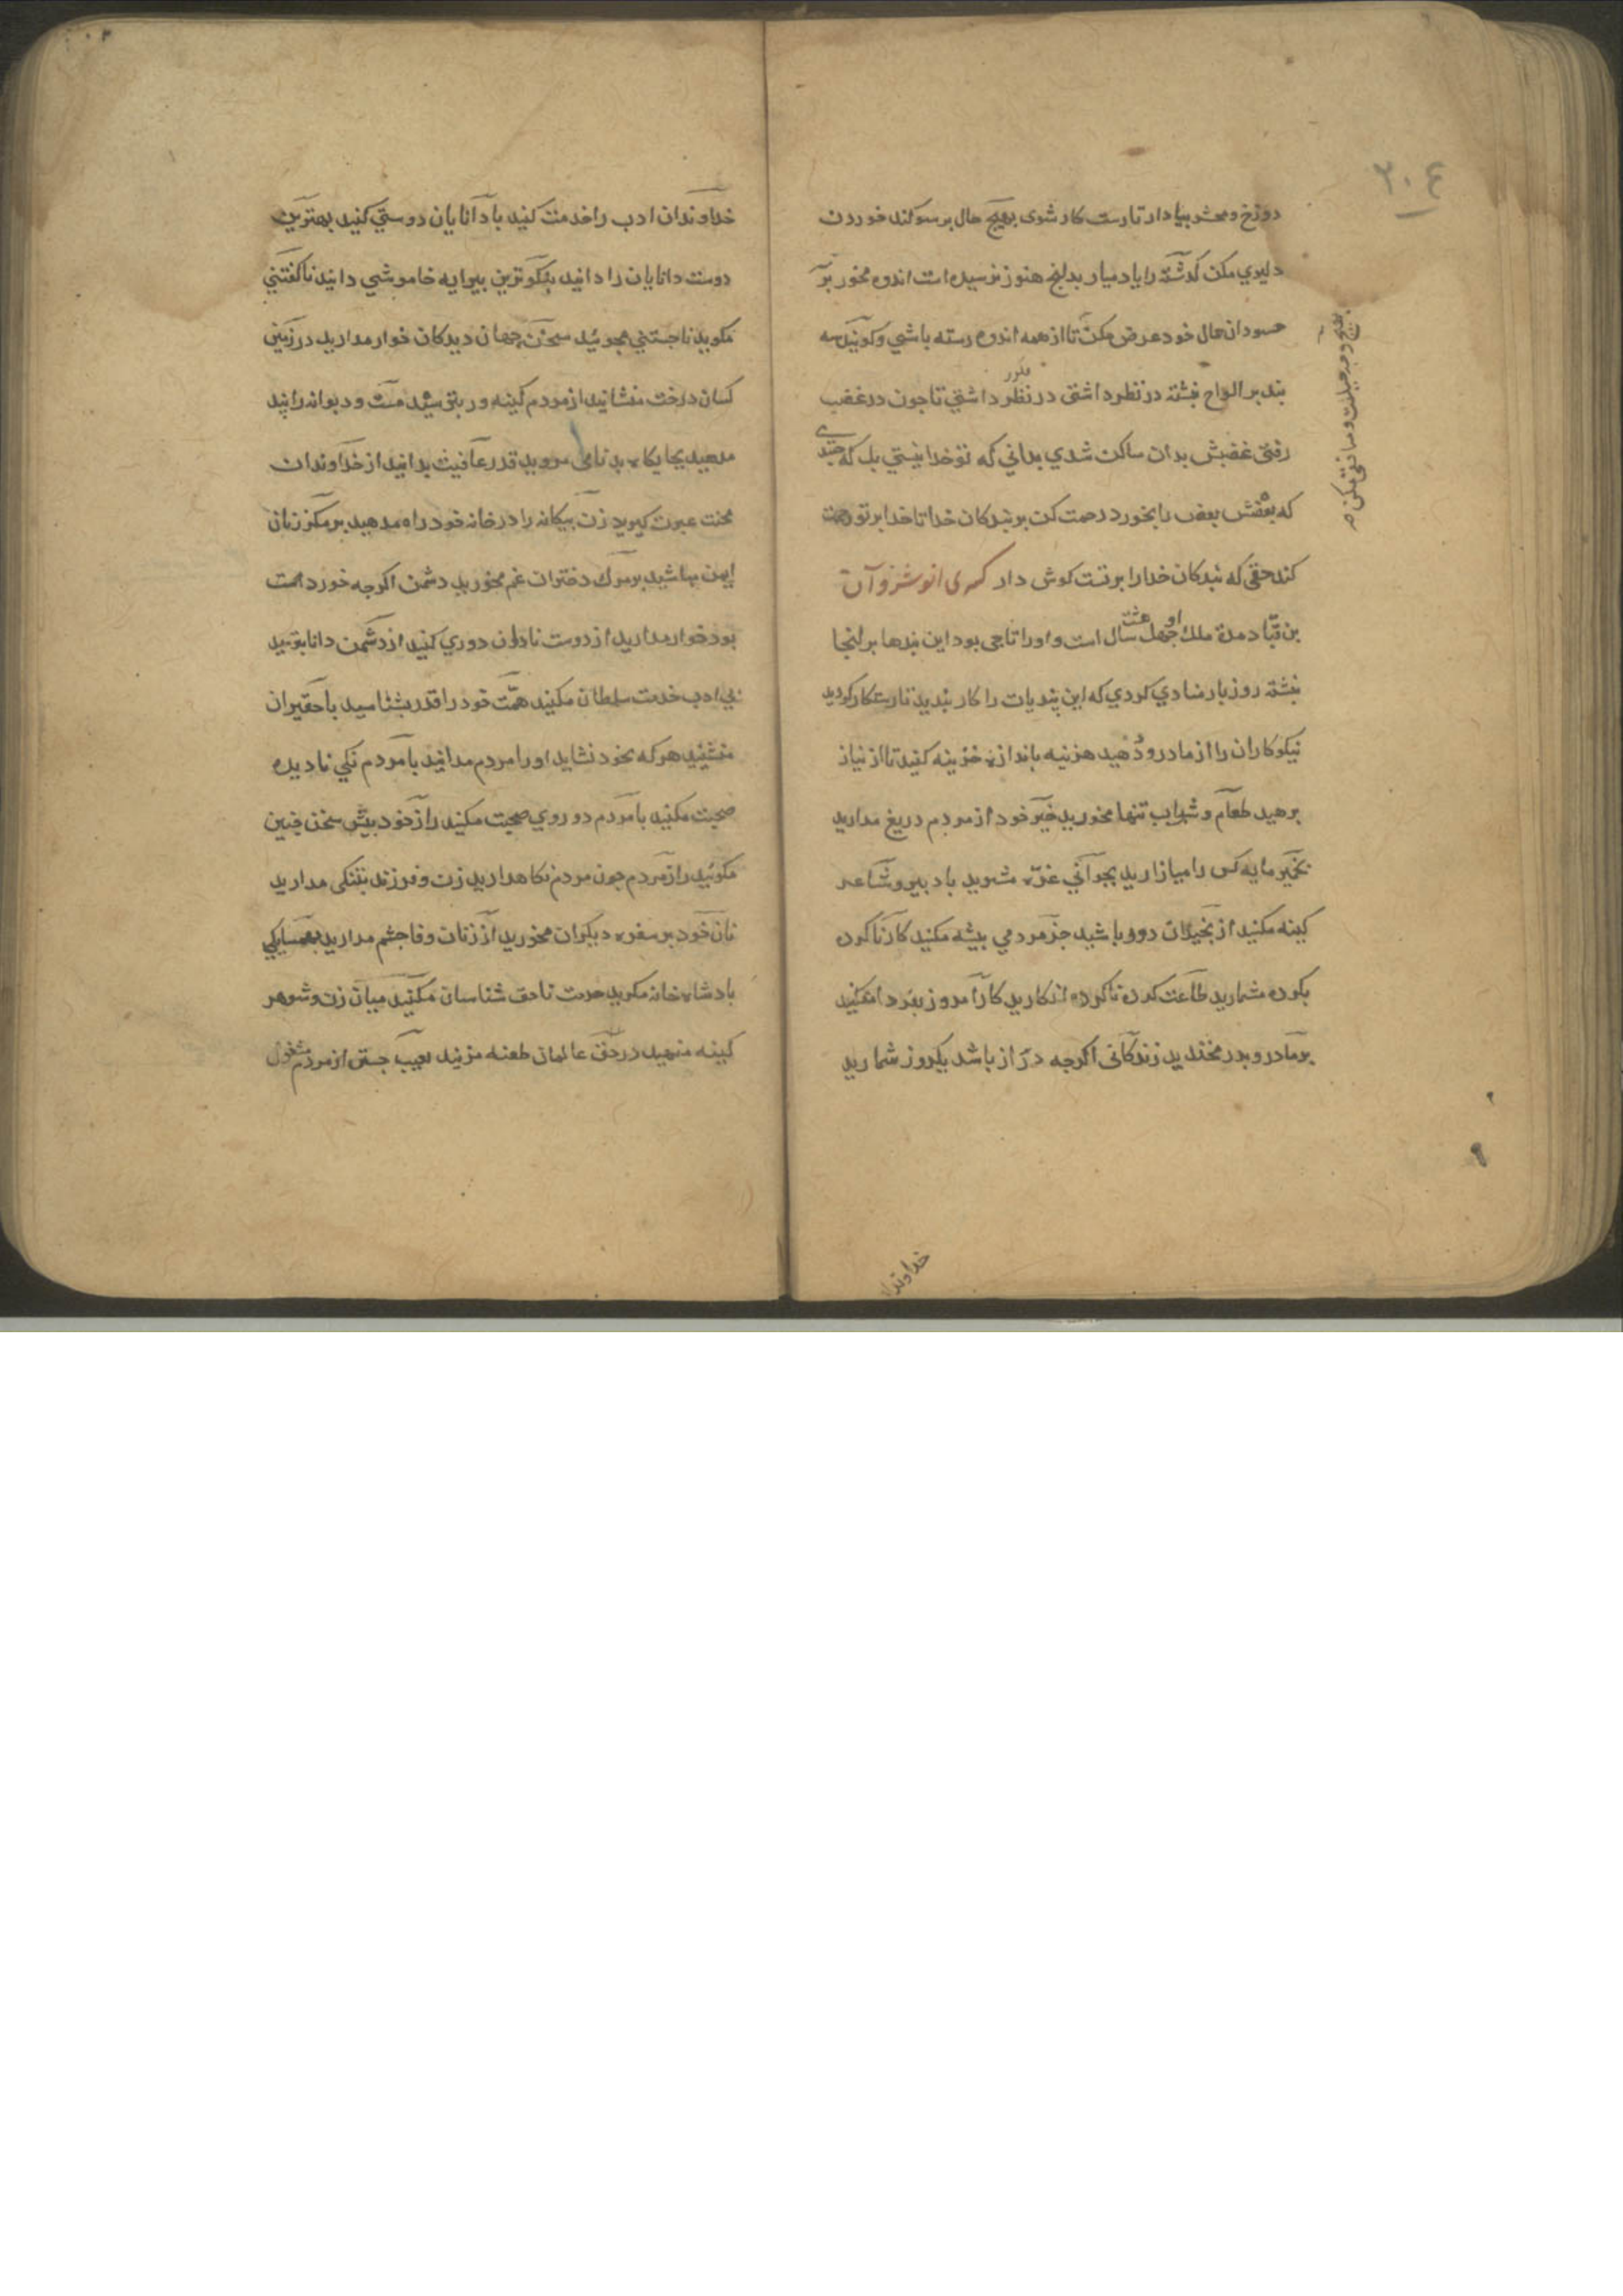 ٣٠٤
دوزخ و محشر بیاد دار تا رست کار شوی بهیچ حال بر سوکند خوردن
دلیری مکن کذشته را یاد میار بدانچ هنوز نرسیده است اندوه مخور بر
حسودان حال خود عرض مکن تا از همه اندوه رسته باشی و کویند سه
بند بر الواح نبشته در نظر داشتی در نظر داشتی تا چون در غضب
رفتی غضبش بدان ساکن شدی بدانی که تو خدا نیستی بل که جسدی
که بعضش بعض را بخورد رحمت کن بر بندکان خدا تا خدا بر تو رحمت
کند حقی که بندکان خدا را بر تست کوش دار کسری انوشزوان
بن قباد مدة ملک او جهل هشت سال است و او را تاجی بود این بندها بر انجا
نبشته روز بار منادی کردی که این بندیات را کار بندید تا رستکار کردید
نیکوکاران را از ما درود دهید هزینه باندازه خزینه کنید تا از نیاز
برهید طعام و شراب تنها مخورید خیر خود از مردم دریغ مدارید
بخمیر مایه کس را میازارید بجوانی غره مشوید با دبیر و شاعر
کینه مکنید از بخیلان دور باشید جز مردمی بیشه مکنید کار ناکرده
بکرده مشمارید طاعت کرده ناکرده انکارید کار امروز بفردا مفکنید
بر مادر و بدر مخندید زندکانی اکرجه دراز باشد یکروز شمارید
خداوندان
خداوندان ادب را خدمت کنید با دانایان دوستی کنید بهترین
دوست دانایان را دانید نیکوترین بیرایه خاموشی دانید ناکفتنی
مکوید ناجستنی مجوئید سخن جهان دیدکان خوار مدارید در زمین
کسان درخت منشانید از مردم کینه ور بترسید مست و دیوانه را بند
مدهید بجایکاه بدنامی مروید قدر عافیت بدانید از خداوندان
محنت عبرت کیرید زن بیکانه را در خانه خود راه مدهید بر مکر زنان
ایمن مباشید بر مرک دختران غم مخورید دشمن اکرجه خورد است
بود خوار مدارید از دوست نادان دوری کنید از دشمن دانا بترسید
بی ادب خدمت سلطان مکنید همت خود را قدر بشناسید با حقیران
منشینید هر که بخود نشاید او را مردم مدانید با مردم نکی نادیده
صحبت مکنید با مردم دو روی صحبت مکنید راز خود بیش سخن جین
مکوئید راز مردم جون مردم نکاه دارید زن و فرزند بتنکی مدارید
نان خود بر سفره دیکران مخورید از زنان وفا جشم مدارید بهمسایکی
بادشاه خانه مکیرید حرمت ناحق شناسان مکنید میان زن و شوهر
کینه منهید در حق عالمان طعنه مزنید بعیب جستن از مردم مشغول